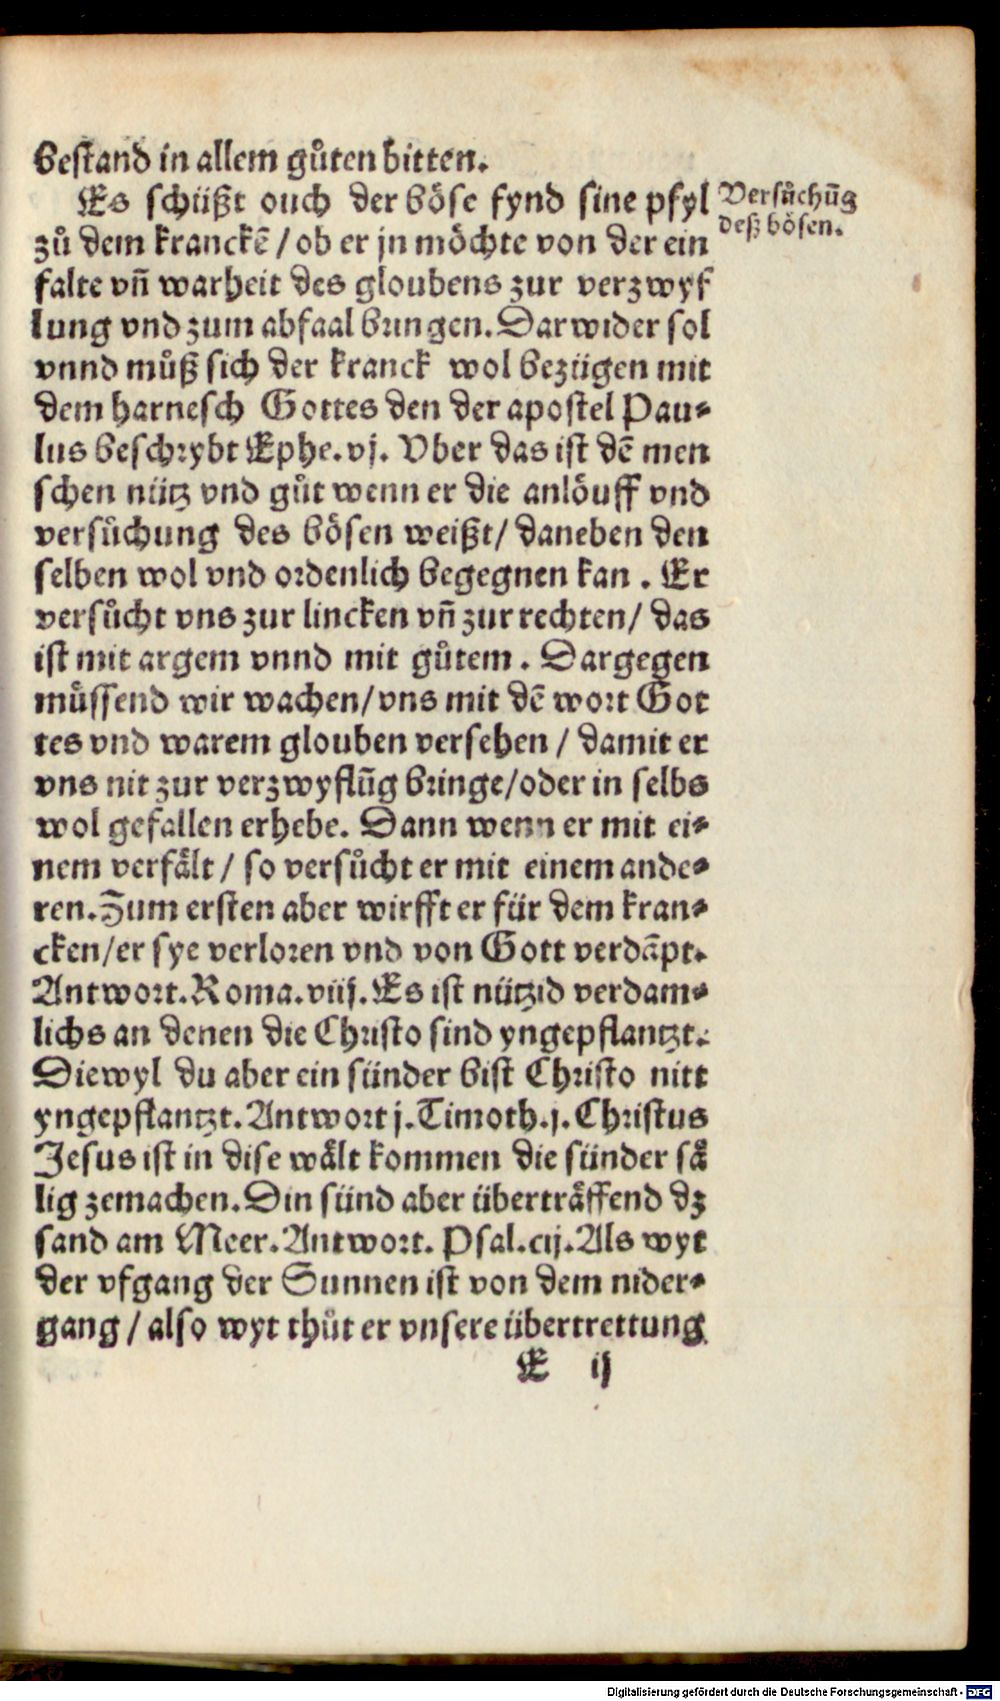 bestand in allem gůten bitten.
Es schüßt ouch der böse fynd sine pfyl
Versůchũg
deß bösen.
zů dem kranckẽ / ob er jn möchte von der ein
falte vñ warheit des gloubens zur verzwyf
lung vnd zum abfaal bringen. Darwider sol
vnnd můß sich der kranck wol bezügen mit
dem harnesch Gottes den der apostel Pau⸗
lus beschrybt Ephe. vj. Vber das ist dẽ men
schen nütz vnd gůt wenn er die anlöuff vnd
versůchung des bösen weißt / daneben den
selben wol vnd ordenlich begegnen kan. Er
versůcht vns zur lincken vñ zur rechten / das
ist mit argem vnnd mit gůtem. Dargegen
müssend wir wachen / vns mit dẽ wort Got
tes vnd warem glouben versehen / damit er
vns nit zur verzwyflũg bringe / oder in selbs
wol gefallen erhebe. Dann wenn er mit ei⸗
nem verfält / so versůcht er mit einem ande⸗
ren. Zum ersten aber wirfft er für dem kran⸗
cken / er sye verloren vnd von Gott verdãpt.
Antwort. Roma. viij. Es ist nützid verdam⸗
lichs an denen die Christo sind yngepflantzt.
Diewyl du aber ein sünder bist Christo nitt
yngepflantzt. Antwort j. Timoth. j. Christus
Jesus ist in dise wält kommen die sünder sä
lig zemachen. Din sünd aber überträffend dz
sand am Meer. Antwort. Psal. cij. Als wyt
der vfgang der Sunnen ist von dem nider⸗
gang / also wyt thůt er vnsere übertrettung
E ij
Digitalisierung gefördert durch die Deutsche Forschungsgemeinschaft - DFG